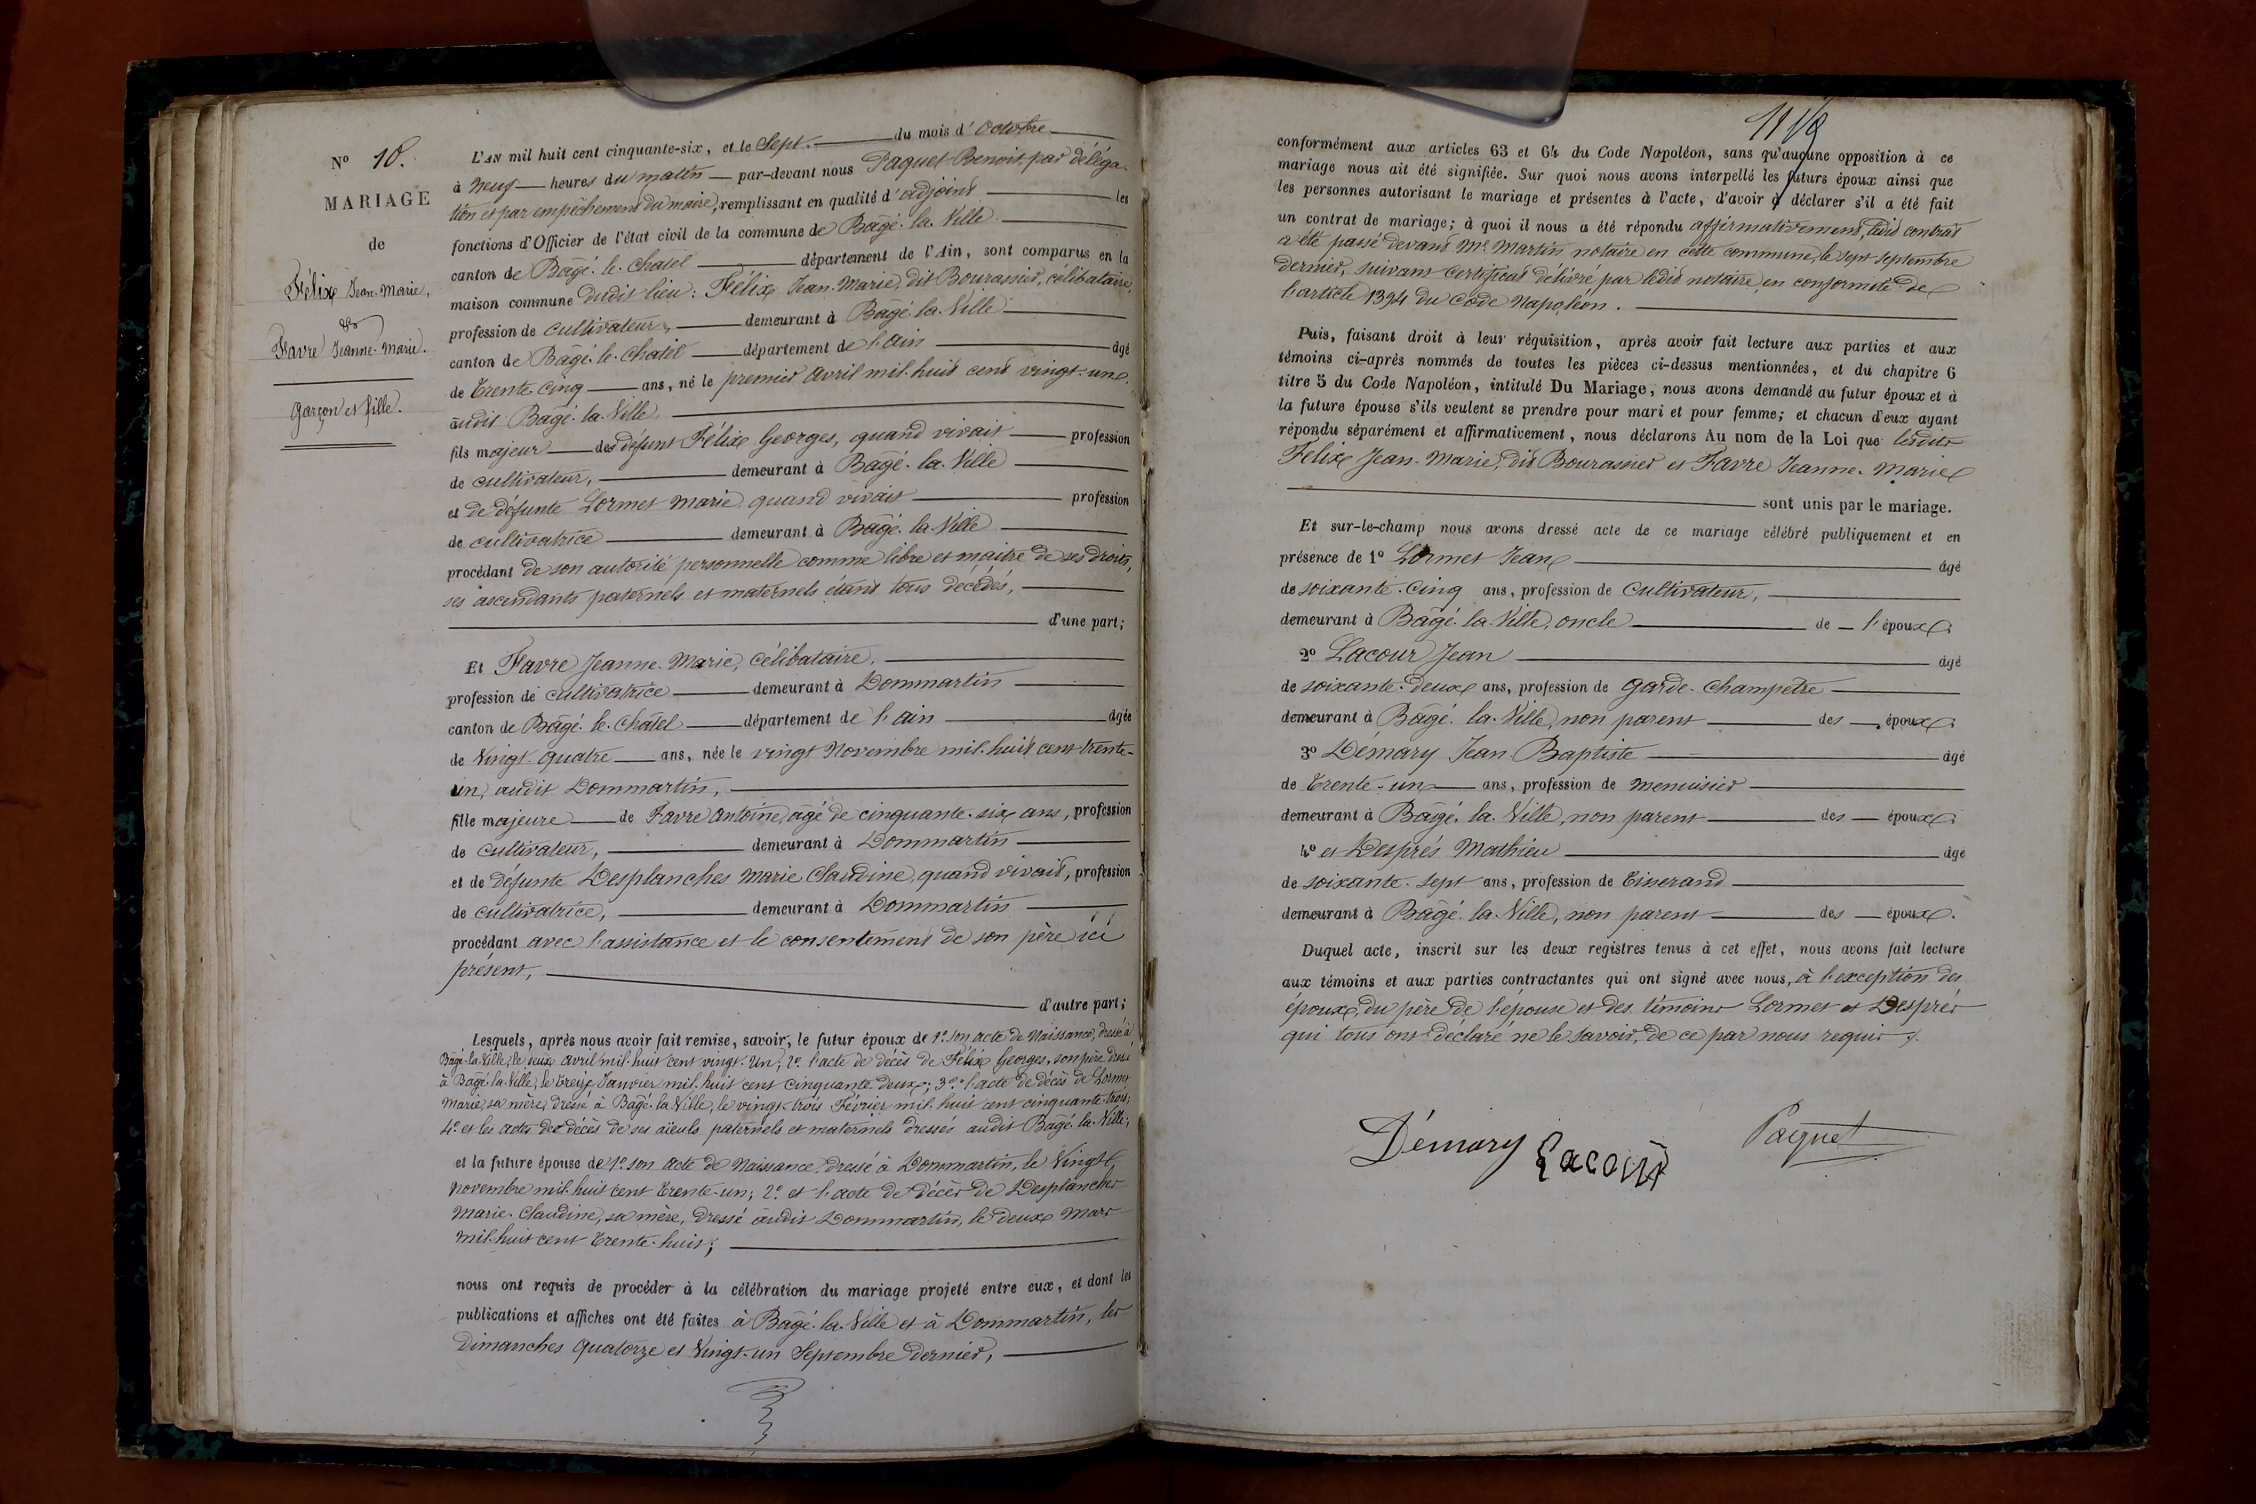 N° 18.
MARIAGE
de
Félix Jean-Marie,
&
Favre Jeanne-Marie.
Garçon et Fille.
L'AN mil huit cent cinquante-six, et le Sept du mois d'Octobre
à Neuf heures du matin par-devant nous Paquet Benoit, par déléga-
tion et par empêchement du maire, remplissant en qualité d'adjoint les
fonctions d'Officier de l'état civil de la commune de Bâgé-la-Ville
canton de Bâgé-le-Chatel département de l'Ain, sont comparus en la
maison commune dudit lieu: Félix Jean-Marie, dit Bourassier, célibataire,
profession de cultivateur, demeurant à Bâgé-la-Ville
canton de Bâgé-le-Chatel département de l'ain âgé
de trente cinq ans, né le premier avril mil-huit cent vingt-un
audit Bâgé-la-Ville
fils majeur de défunt Félix Georges, quand vivait profession
de cultivateur, demeurant à Bâgé-la-Ville
et de défunte Lormet Marie quand vivait profession
de cultivatrice demeurant à Bâgé-la-Ville
procédant de son autorité personnelle comme libre et maitre de ses droits,
ses ascendants paternels et maternels étant tous décédés,
d'une part;
Et Favre Jeanne-Marie, célibataire,
profession de cultivatrice demeurant à Dommartin
canton de Bâgé-le-Châtel département de l'ain âgée
de Vingt-quatre ans, née le vingt Novembre mil-huit cent trente-
un, audit Dommartin,
fille majeure de Favre Antoine, âgé de cinquante-six ans, profession
de cultivateur, demeurant à Dommartin
et de défunte Desplanches Marie Claudine, quand vivait, profession
de cultivatrice, demeurant à Dommartin
procédant avec l'assistance et le consentement de son père ici
présent,
d'autre part;
Lesquels, après nous avoir fait remise, savoir, le futur époux de 1° son acte de Naissance, dressé à
Bâgé-la-Ville, le deux avril mil-huit cent vingt-un; 2° l'acte de décès de Félix Georges, son père dressé
à Bâgé-la-Ville, le treize Janvier mil-huit cent cinquante-deux; 3° l'acte de décès de Lormet
Marie, sa mère, dressé à Bâgé-la-Ville, le vingt-trois Février mil-huit cent cinquante-trois;
4° et les actes de décès de ses aïeuls paternels et maternels dressés audit Bâgé-la-Ville;
et la future épouse de 1° son acte de Naissance, dressé à Dommartin, le Vingt
novembre mil-huit cent trente-un; 2° et l'acte de décès de Desplanches
Marie-Claudine, sa mère, dressé audit Dommartin, le deux mars
mil-huit cent trente-huit;
nous ont requis de procéder à la célébration du mariage projeté entre eux, et dont les
publications et affiches ont été faites à Bâgé-la-Ville et à Dommartin, les
Dimanches quatorze et Vingt-un Septembre dernier,
conformément aux articles 63 et 64 du Code Napoléon, sans qu'aucune opposition à ce
mariage nous ait été signifiée. Sur quoi nous avons interpellé les futurs époux ainsi que
les personnes autorisant le mariage et présentes à l'acte, d'avoir à déclarer s'il a été fait
un contrat de mariage; à quoi il nous a été répondu affirmativement, ledit contrat
a été passé devant Mr. Martin notaire en cette commune, le sept septembre
dernier, suivant certificat délivré par ledit notaire, en conformité de
l'article 1394 du Code Napoléon.
Puis, faisant droit à leur réquisition, après avoir fait lecture aux parties et aux
témoins ci-après nommés de toutes les pièces ci-dessus mentionnées, et du chapitre 6
titre 5 du Code Napoléon, intitulé Du Mariage, nous avons demandé au futur époux et à
la future épouse s'ils veulent se prendre pour mari et pour femme; et chacun d'eux ayant
répondu séparément et affirmativement, nous déclarons Au nom de la Loi que lesdits
Félix Jean-Marie, dit Bourassier et Favre Jeanne-Marie
sont unis par le mariage.
Et sur-le-champ nous avons dressé acte de ce mariage célébré publiquement et en
présence de 1° Lormet Jean âgé
de soixante-cinq ans, profession de cultivateur,
demeurant à Bâgé-la-Ville, oncle de l'époux
2° Lacour Jean âgé
de soixante-deux ans, profession de garde-champêtre
demeurant à Bâgé-la-Ville, non parent des époux
3° Démary Jean Baptiste âgé
de trente-un ans, profession de menuisier
demeurant à Bâgé-la-Ville, non parent des époux
4° et Desprès Mathieu âgé
de soixante-sept ans, profession de tisserand
demeurant à Bâgé-la-Ville, non parent des époux.
Duquel acte, inscrit sur les deux registres tenus à cet effet, nous avons fait lecture
aux témoins et aux parties contractantes qui ont signé avec nous, à l'exception des
époux, du père de l'épouse et des témoins Lormet et Desprès
qui tous ont déclaré ne le savoir, de ce par nous requis.
Démary Lacour Paquet